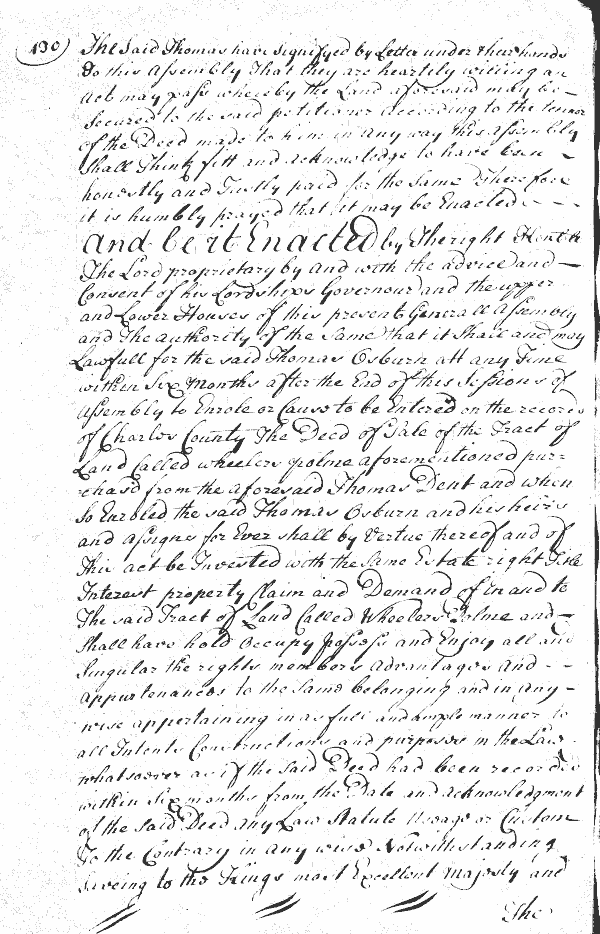 190
The Said Thomas have signifyed by Letter under their hands
to this Assembly That they are heartily willing an
Act may pass whereby the Land aforesaid may be
Secured to the said petitioner according to the tennor
of the Deed made to him in any way this Assembly
Shall Think fitt and acknowledge to have been
honestly and Justly paid for the same Therefore
it is humbly prayed that it may be Enacted
And be it Enacted by The right Honble
The Lord proprietary by and with the advice and
Consent of his Lordships Governour and the upper
and Lower Houses of this present Generall Assembly
and The authority of the same that it Shall and may
Lawfull for the said Thomas Osburn att any Time
within Six Months after the End of this Sessions of
Assembly to Enrole or Cause to be Entered on the records
of Charles County The Deed of Sale of the Tract of
Land Called wheelers polme aforementioned pur=
chas'd from the aforesaid Thomas Dent and when
So Enroled the said Thomas Osburn and his heirs
and assigns for Ever shall by Vertue thereof and of
this act be Invested with the Same Estate right Title
Interest property Claim and Demand of in and to
The said Tract of Land Called Wheelers Polme and
Shall have hold Occupy possess and Enjoy all and
Singular the rights members advantages and
appurtenances to the same belonging and in any
wise appertaining in as full and ample manner to
all Intents Constructions and purposes in the Law
whatsoever as if the said Deed had been recorded
within Six months from the Date and acknowledgment
of the said Deed any Law Statute Usage or Custom
To the Contrary in any wise Notwithstanding
Saveing to the Kings most Excellent Majesty and
The